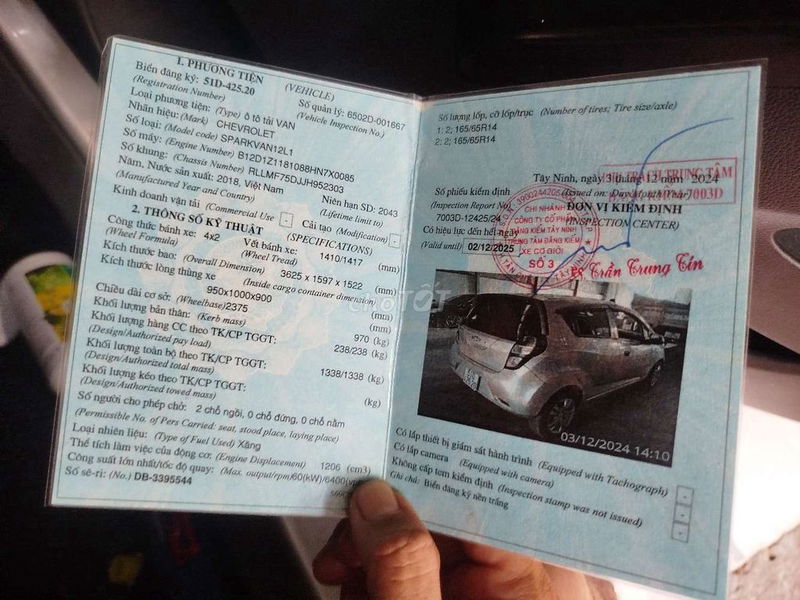 1. PHƯƠNG TIỆN (VEHICLE)
Biển đăng ký: 51D-425.20
(Registration Number) Số quản lý: 6502D-001667
(Vehicle Inspection No.)
Loại phương tiện: (Type) ô tô tải VAN
Nhãn hiệu: (Mark) CHEVROLET
Số loại: (Model code) SPARKVAN12L1
Số máy: (Engine Number) B12D1Z1181088HN7X0085
Số khung: (Chassis Number) RLLMF75DJJH952303
Năm, Nước sản xuất: 2018, Việt Nam Niên hạn SD: 2043
(Manufactured Year and Country) (Lifetime limit to)
Kinh doanh vận tải (Commercial Use) - Cải tạo (Modification) -
2. THÔNG SỐ KỸ THUẬT (SPECIFICATION)
Công thức bánh xe: 4x2 Vết bánh xe: 1410/1417 (mm)
(Wheel Formula) (Wheel Tread)
Kích thước bao: (Overall Dimension) 3625 x 1597 x 1522 (mm)
Kích thước lòng thùng xe (Inside cargo container dimension)
950x1000x900 (mm)
Chiều dài cơ sở: (Wheelbase) 2375 (mm)
Khối lượng bản thân: (Kerb mass) 970 (kg)
Khối lượng hàng CC theo TK/CP TGGT: 238/238 (kg)
(Design/Authorized pay load)
Khối lượng toàn bộ theo TK/CP TGGT: 1338/1338 (kg)
(Design/Authorized total mass)
Khối lượng kéo theo TK/CP TGGT: (kg)
(Design/Authorized towed mass)
Số người cho phép chở: 2 chỗ ngồi, 0 chỗ đứng, 0 chỗ nằm
(Permissible No. of Pers Carried: seat, stood place, laying place)
Loại nhiên liệu: (Type of Fuel Used) Xăng
Thể tích làm việc của động cơ: (Engine Displacement) 1206 (cm3)
Công suất lớn nhất/tốc độ quay: (Max. output/rpm) 60(kW)/6400(vph)
Số sê-ri: (No.) DB-3395544
Số lượng lốp, cỡ lốp/trục (Number of tires; Tire size/axle)
1: 2; 165/65R14
2: 2; 165/65R14
Tây Ninh, ngày 3 tháng 12 năm 2024
(Issued on: Day/Month/Year)
Số phiếu kiểm định
(Inspection Report No)
7003D-12425/24
ĐƠN VỊ KIỂM ĐỊNH
(INSPECTION CENTER)
Có hiệu lực đến hết ngày
(Valid until) 02/12/2025
CHI NHÁNH
CÔNG TY CỔ PHẦN
ĐĂNG KIỂM TÂY NINH
TRUNG TÂM ĐĂNG KIỂM
XE CƠ GIỚI
SỐ 3
TÂY NINH
7003D
Trần Trung Tín
Chợ TỐT
03/12/2024 14:10
Có lắp thiết bị giám sát hành trình (Equipped with Tachograph) -
Có lắp camera (Equipped with camera) -
Không cấp tem kiểm định (Inspection stamp was not issued) -
Ghi chú: Biển đăng ký nền trắng